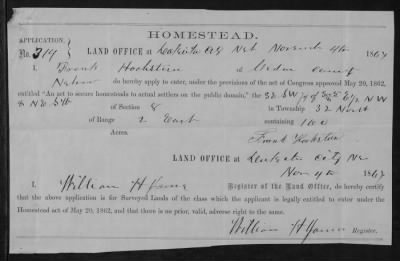 HOMESTEAD.
APPLICATION,
No. 319 LAND OFFICE at Dakota City Neb November 4th 1867
I, Frank Hochstein of Cedar County
do hereby apply to enter, under the provisions of the act of Congress approved May 20, 1862,
entitled "An act to secure homesteads to actual settlers on the public domain," the
of Section 8 in Township 32 North
of Range 2 East containing 160
Acres.
Frank Hochstein
LAND OFFICE at Dakota City Ne
Nov 4th 1867
I, William H James Register of the Land Office, do hereby certify
that the above application is for Surveyed Lands of the class which the applicant is legally entitled to enter under the
Homestead act of May 20, 1862, and that there is no prior, valid, adverse right to the same.
William H James Register.